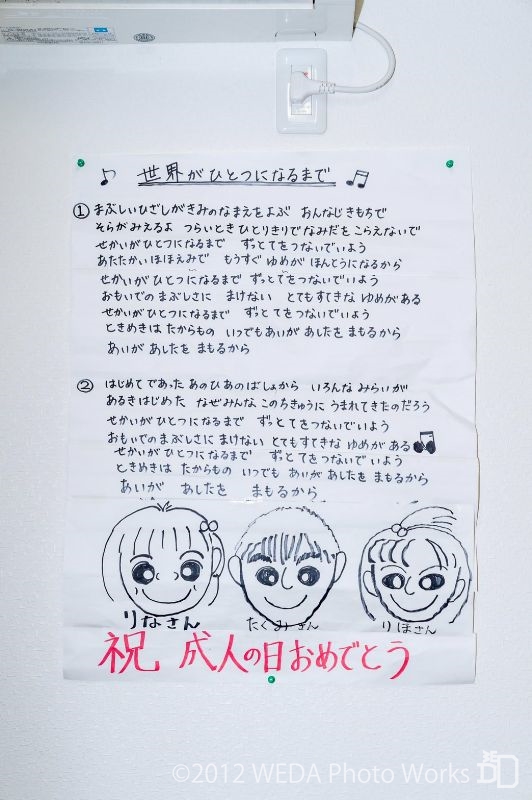 世界がひとつになるまで
① まぶしいひざしがきみのなまえをよぶ おんなじきもちで
そらがみえるよ つらいとき ひとりきりで なみだを こらえないで
せかいが ひとつになるまで ずっとてをつないでいよう
あたたかい ほほえみで もうすぐ ゆめが ほんとうになるから
せかいが ひとつに なるまで ずっと てをつないでいよう
おもいでの まぶしさに まけない とてもすてきな ゆめがある
せかいが ひとつに なるまで ずっと てをつないでいよう
ときめきは たからもの いつでもあいが あしたを まもるから
あいが あしたを まもるから
② はじめて であった あのひ あのばしょから いろんな みらいが
あるきはじめた なぜみんな このちきゅうに うまれてきたのだろう
せかいが ひとつになるまで ずっと てをつないでいよう
おもいでの まぶしさに まけない とてもすてきな ゆめがある
せかいが ひとつに なるまで ずっと てをつないで いよう
ときめきは たからもの いつでも あいが あしたを まもるから
あいが あしたを まもるから
りなさん たくみさん りほさん
祝 成人の日おめでとう
©2012 WEDA Photo Works